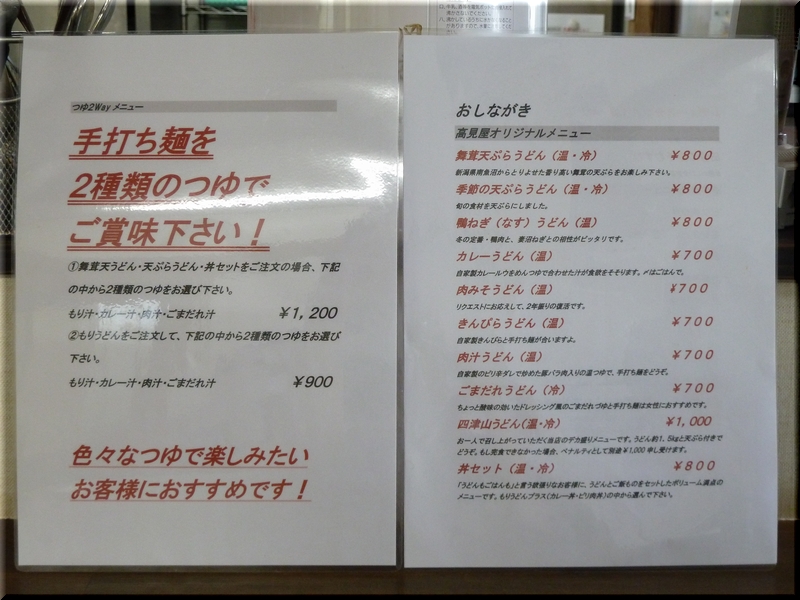 つゆ2Way メニュー
手打ち麺を
2種類のつゆで
ご賞味下さい！
①舞茸天うどん・天ぷらうどん・丼セットをご注文の場合、下記
の中から2種類のつゆをお選び下さい。
もり汁・カレー汁・肉汁・ごまだれ汁 ￥1,200
②もりうどんをご注文して、下記の中から2種類のつゆをお選び
下さい。
もり汁・カレー汁・肉汁・ごまだれ汁 ￥900
色々なつゆで楽しみたい
お客様におすすめです！
おしながき
高見屋オリジナルメニュー
舞茸天ぷらうどん（温・冷） ￥800
新潟県南魚沼からとりよせた香り高い舞茸の天ぷらをお楽しみ下さい。
季節の天ぷらうどん（温・冷） ￥800
旬の食材を天ぷらにしました。
鴨ねぎ（なす）うどん（温） ￥800
冬の定番・鴨肉と、妻沼ねぎとの相性がピッタリです。
カレーうどん（温） ￥700
自家製カレールウをめんつゆで合わせた汁が食欲をそそります。〆はごはんで。
肉みそうどん（温） ￥700
リクエストにお応えして、2年振りの復活です。
きんぴらうどん（温） ￥700
自家製きんぴらと手打ち麺が合いますよ。
肉汁うどん（温） ￥700
自家製のピリ辛ダレで炒めた豚バラ肉入りの温つゆで、手打ち麺をどうぞ。
ごまだれうどん（冷） ￥700
ちょっと酸味の効いたドレッシング風のごまだれづゆと手打ち麺は女性におすすめです。
四津山うどん（温・冷） ￥1,000
お一人で召し上がっていただく当店のデカ盛りメニューです。うどん約1.5kgと天ぷら付きで
どうぞ。もし完食できなかった場合、ペナルティとして別途￥1,000申し受けます。
丼セット（温・冷） ￥800
「うどんもごはんも」と言う欲張りなお客様に、うどんとご飯ものをセットしたボリューム満点の
メニューです。もりうどんプラス（カレー丼・ピリ肉丼）の中から選んで下さい。